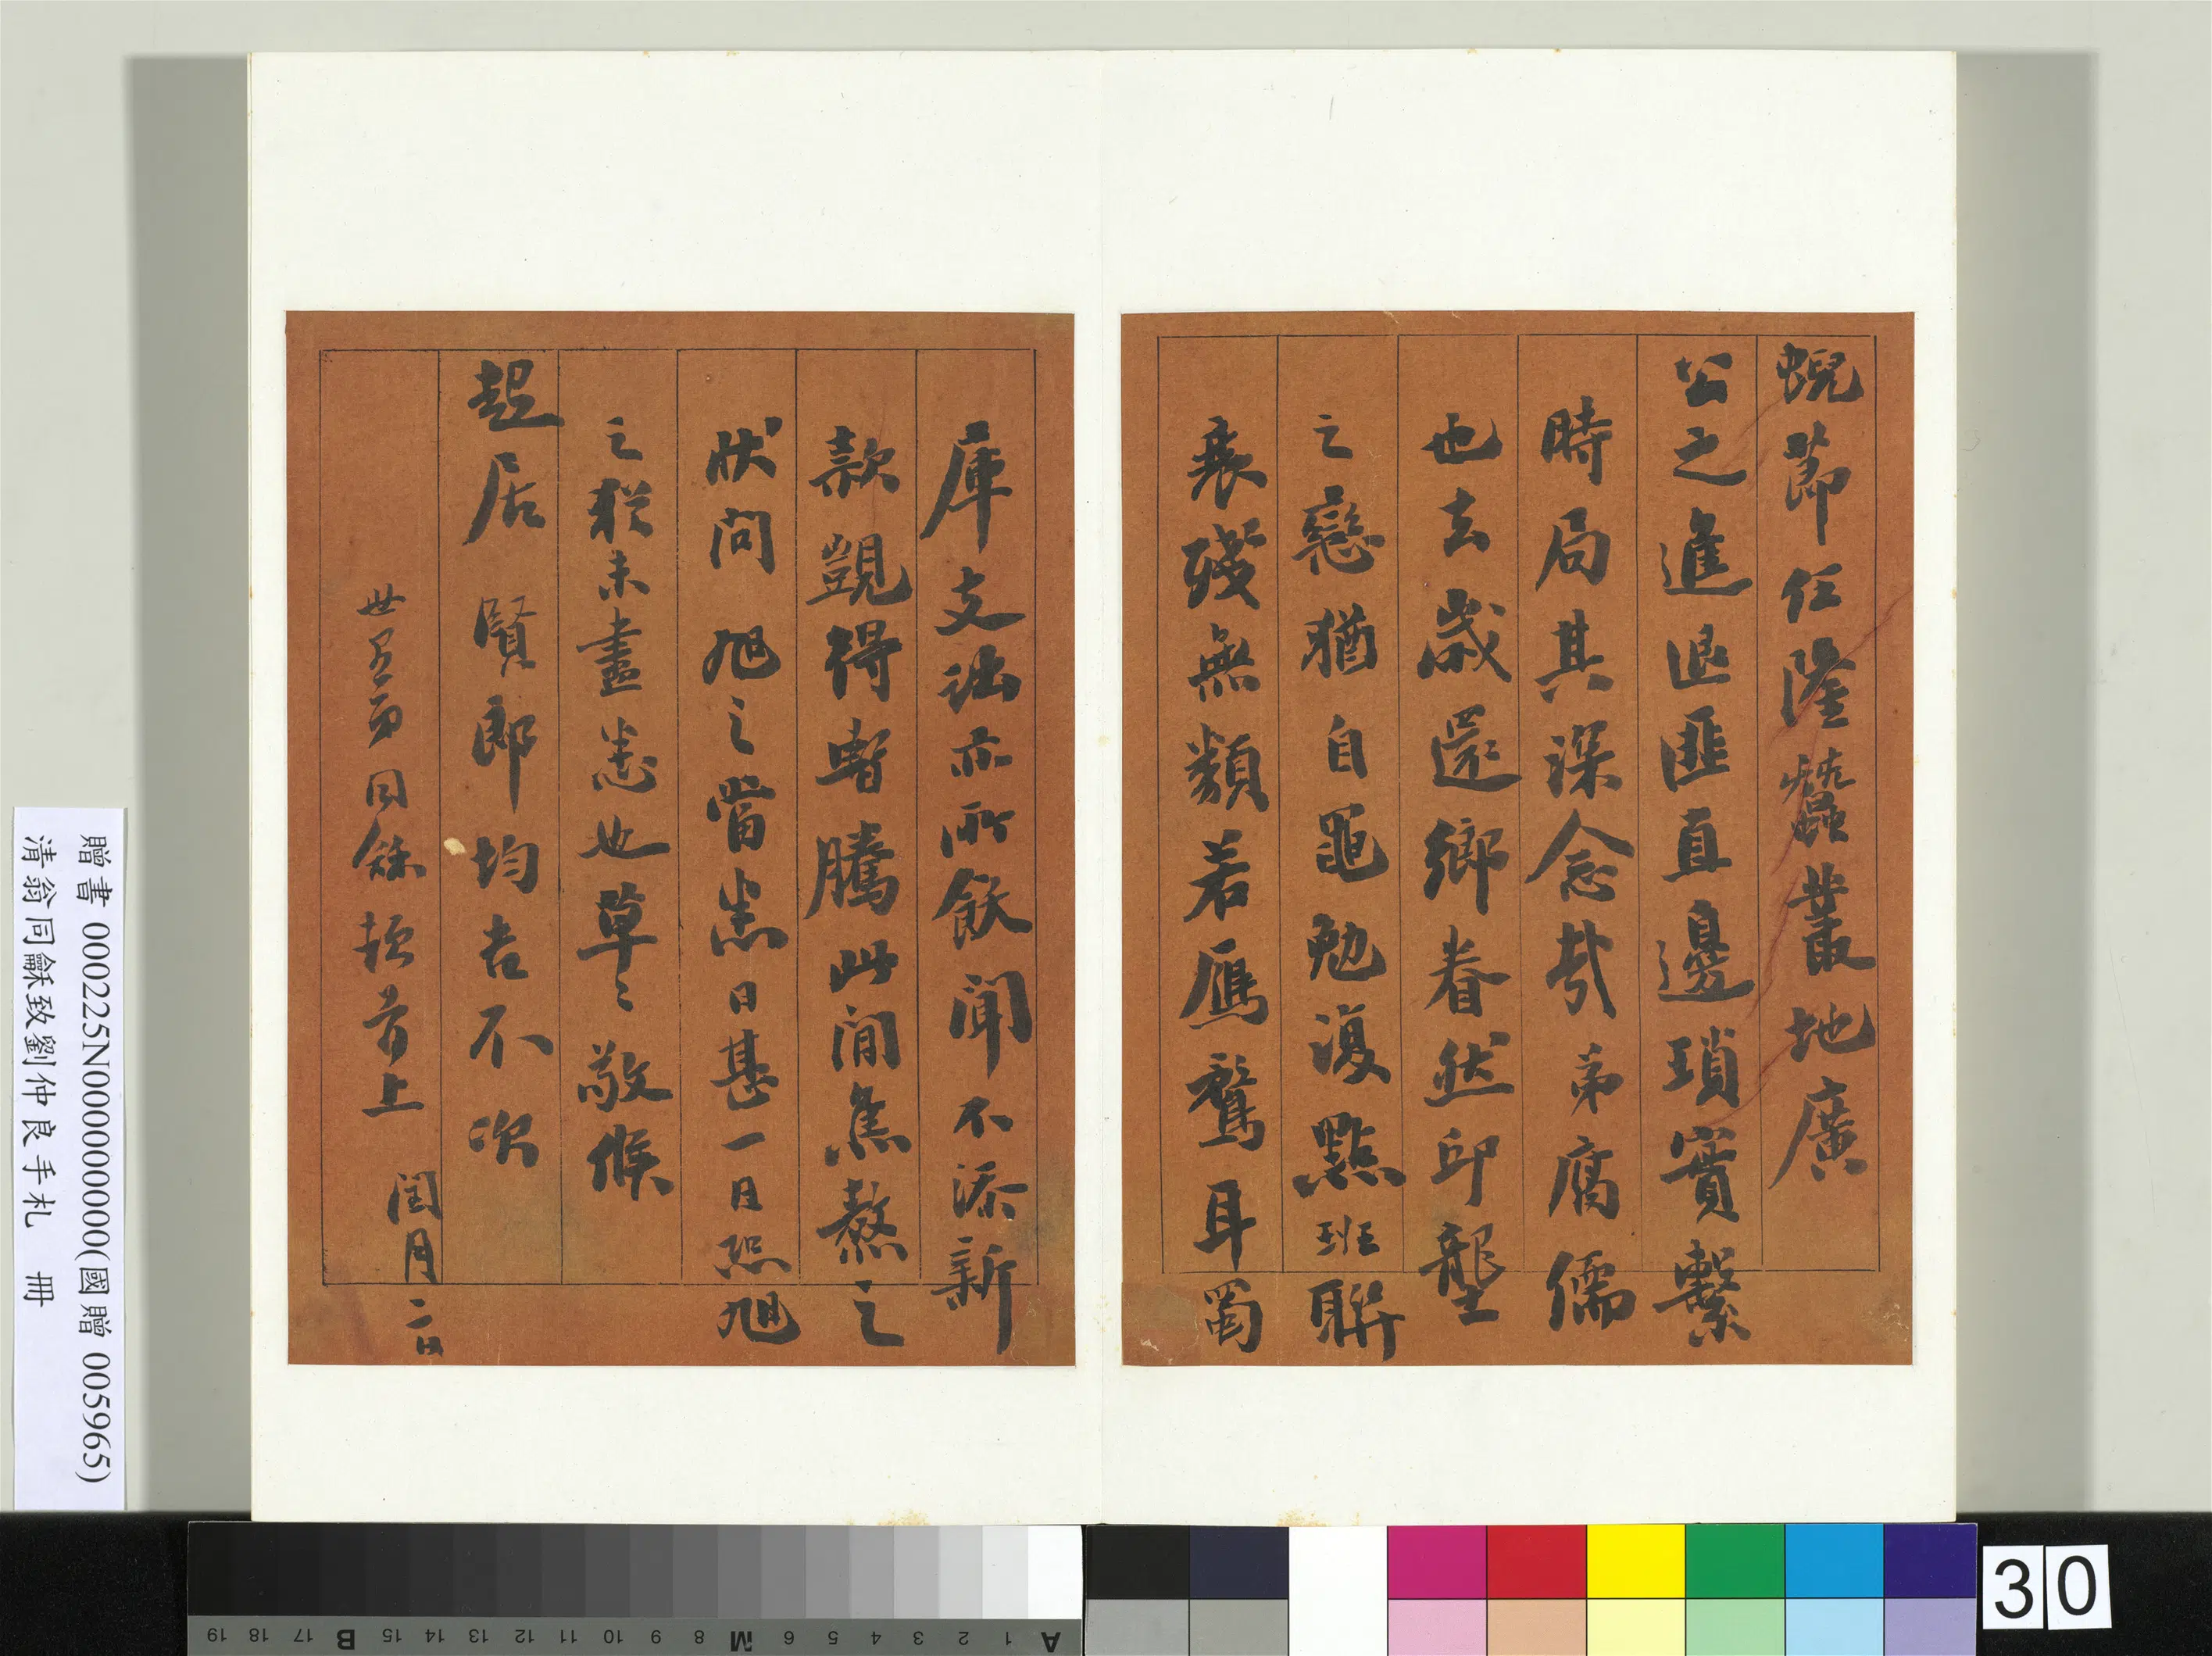 蜺節任隆蠶叢地廣
公之進退匪直邊瑣實繫
時局其深念哉弟腐儒
也去歲還鄉眷然邱壟
之戀猶自黽勉復點班聯
衰殘無類若鴈鶩耳蜀
庫支詘亦所飫聞不添新
款覬得暫騰此間焦熬之
狀問旭之當悉日甚一日恐旭
之猶未盡悉也草〻敬候
起居賢郎均吉不次
世愚弟同龢頓首上 閏月二日
贈書 000225N000000000(國贈 005965)
清翁同龢致劉仲良手札 冊
A 1 2 3 4 5 6 M 8 9 10 11 12 13 14 15 B 17 18 19
30